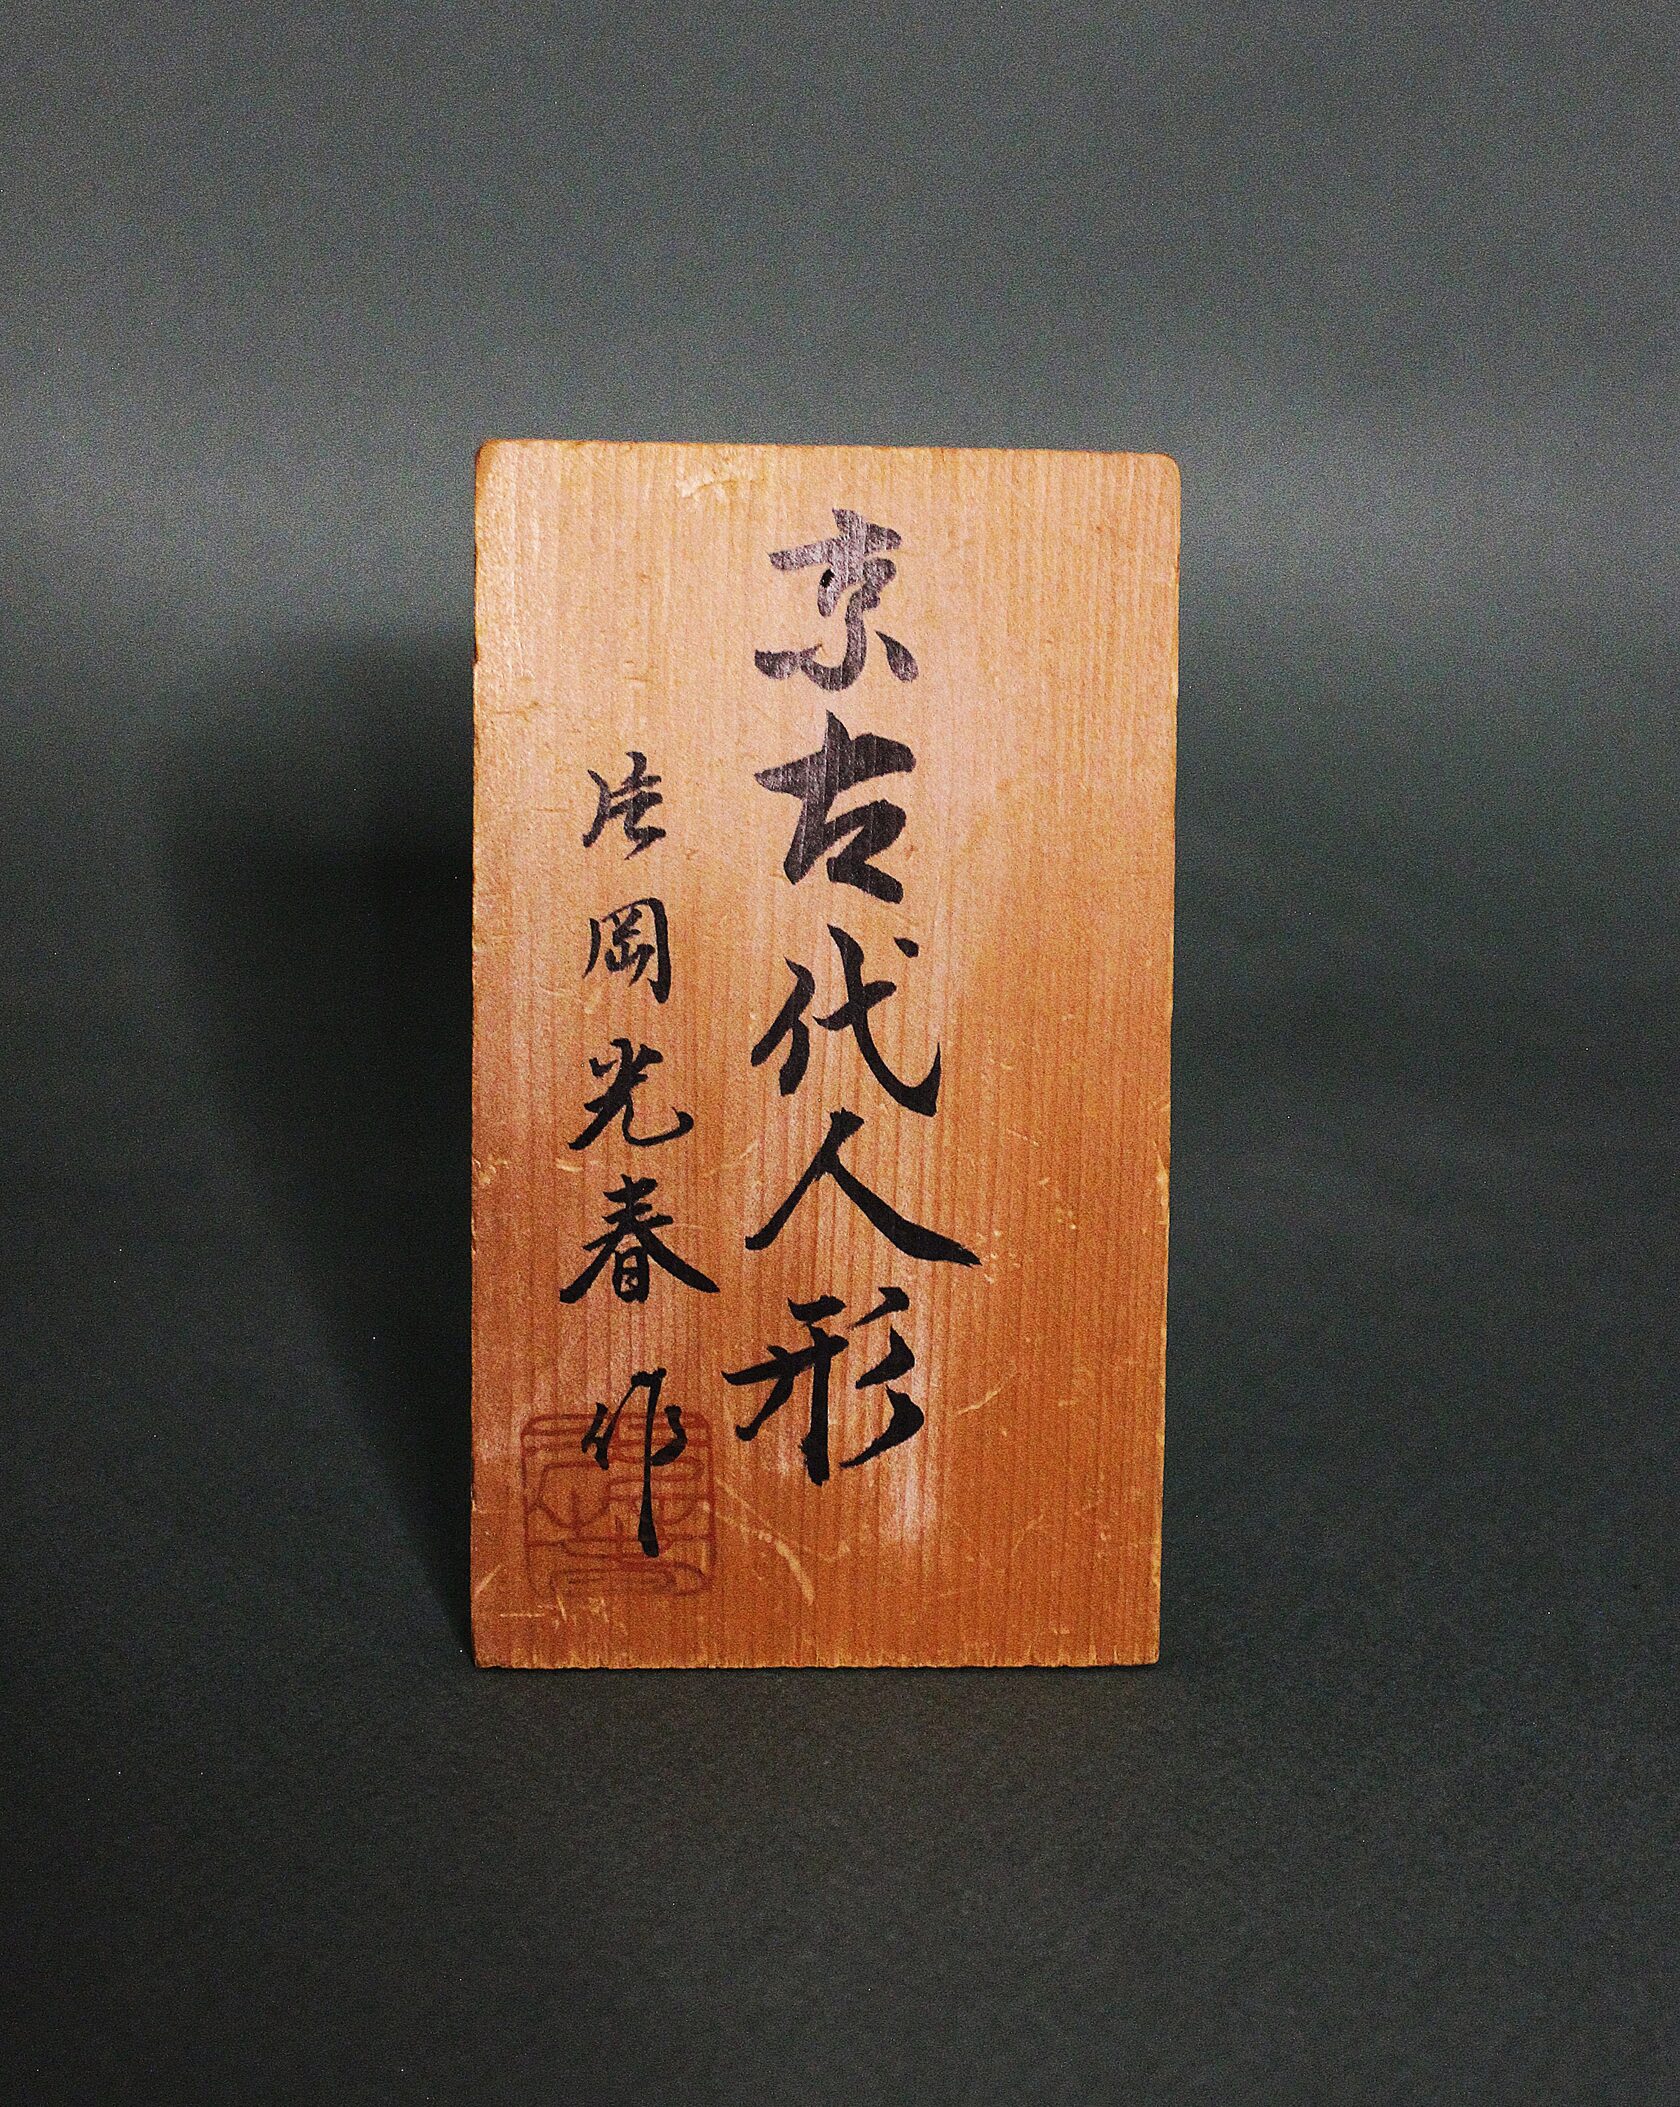 京古代人形
片岡光春作